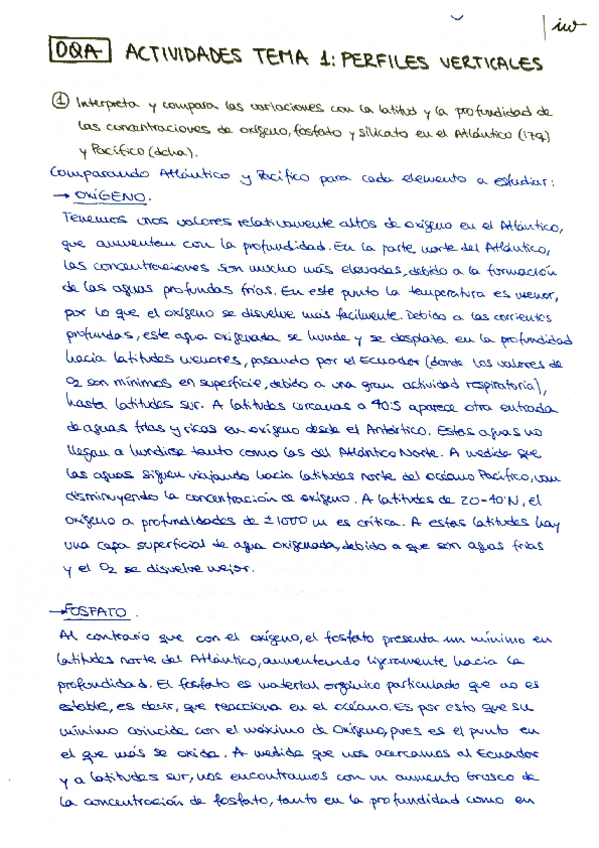 iw
OQA ACTIVIDADES TEMA 1: PERFILES VERTICALES
① Interpreta y compara las variaciones con la latitud y la profundidad de
las concentraciones de oxígeno, fosfato y silicato en el Atlántico (izq)
y Pacífico (dcha).
Comparando Atlántico y Pacífico para cada elemento a estudiar:
→ OXÍGENO.
Tenemos unos valores relativamente altos de oxígeno en el Atlántico,
que aumentan con la profundidad. En la parte norte del Atlántico,
las concentraciones son mucho más elevadas, debido a la formación
de las aguas profundas frías. En este punto la temperatura es menor,
por lo que el oxígeno se disuelve más facilmente. Debido a las corrientes
profundas, este agua oxigenada se hunde y se desplaza en la profundidad
hacia latitudes menores, pasando por el Ecuador (donde los valores de
O2 son mínimos en superficie, debido a una gran actividad respiratoria),
hasta latitudes sur. A latitudes cercanas a 40:S aparece otra entrada
de aguas frías y ricas en oxígeno desde el Antártico. Estas aguas no
llegan a hundirse tanto como las del Atlántico Norte. A medida que
las aguas siguen viajando hacia latitudes norte del océano Pacífico, van
disminuyendo la concentración de oxígeno. A latitudes de 20-40°N, el
oxígeno a profundidades de ±1000 m es crítica. A estas latitudes hay
una capa superficial de agua oxigenada, debido a que son aguas frías
y el O2 se disuelve mejor.
→ FOSFATO.
Al contrario que con el oxígeno, el fosfato presenta un mínimo en
latitudes norte del Atlántico, aumentando ligeramente hacia la
profundidad. El fosfato es material orgánico particulado que no es
estable, es decir, que reacciona en el océano. Es por esto que su
mínimo coincide con el máximo de Oxígeno, pues es el punto en
el que más se oxida. A medida que nos acercamos al Ecuador
y a latitudes sur, nos encontramos con un aumento brusco de
la concentración de fosfato, tanto en la profundidad como en